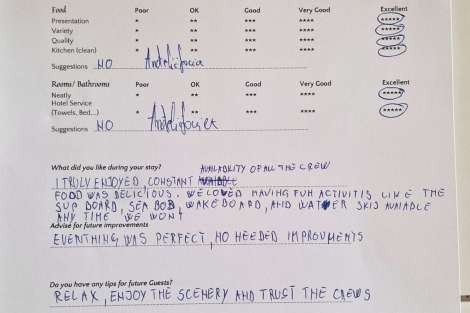 Food Poor OK Good Very Good Excellent
Presentation * ** *** **** *****
Variety * ** *** **** *****
Quality * ** *** **** *****
Kitchen (clean) * ** *** **** *****
Suggestions NO
Rooms/ Bathrooms Poor OK Good Very Good Excellent
Neatly * ** *** **** *****
Hotel Service
(Towels, Bed...) * ** *** **** *****
Suggestions NO
What did you like during your stay? AVAILABILITY OF ALL THE CREW
I TRULY ENJOYED, CONSTANT
FOOD WAS DELICIOUS. WE LOVED HAVING FUN ACTIVITIS LIKE THE
SUP BOARD, SEA BOB, WAKE BOARD, AND WATER SKIS AVAIABLE
ANY TIME WE WONT
Advise for future improvements
EVENTHING WAS PERFECT, NO NEEDED IMPROVMENTS
Do you have any tips for future Guests?
RELAX, ENJOY THE SCENERY AND TRUST THE CREWS